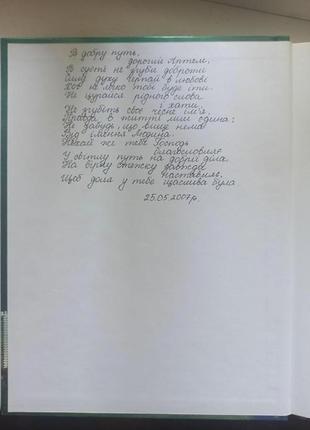 В добру путь,
дорогий Артем,
В суєті не згуби доброти
Хоч не легко тобі буде іти.
Не цурайся рідного слова
і хати,
Не згубіть своє чесне ім'я.
Правда в житті лиш одна:
Не забудь, що вище нема
Від імення Людина.
Нехай же тебе Господь
благословляє
У світлу путь на добрі діла.
На вірну стежку завжди
наставляє,
Щоб доля у тебе щаслива була
25.05.2007р.